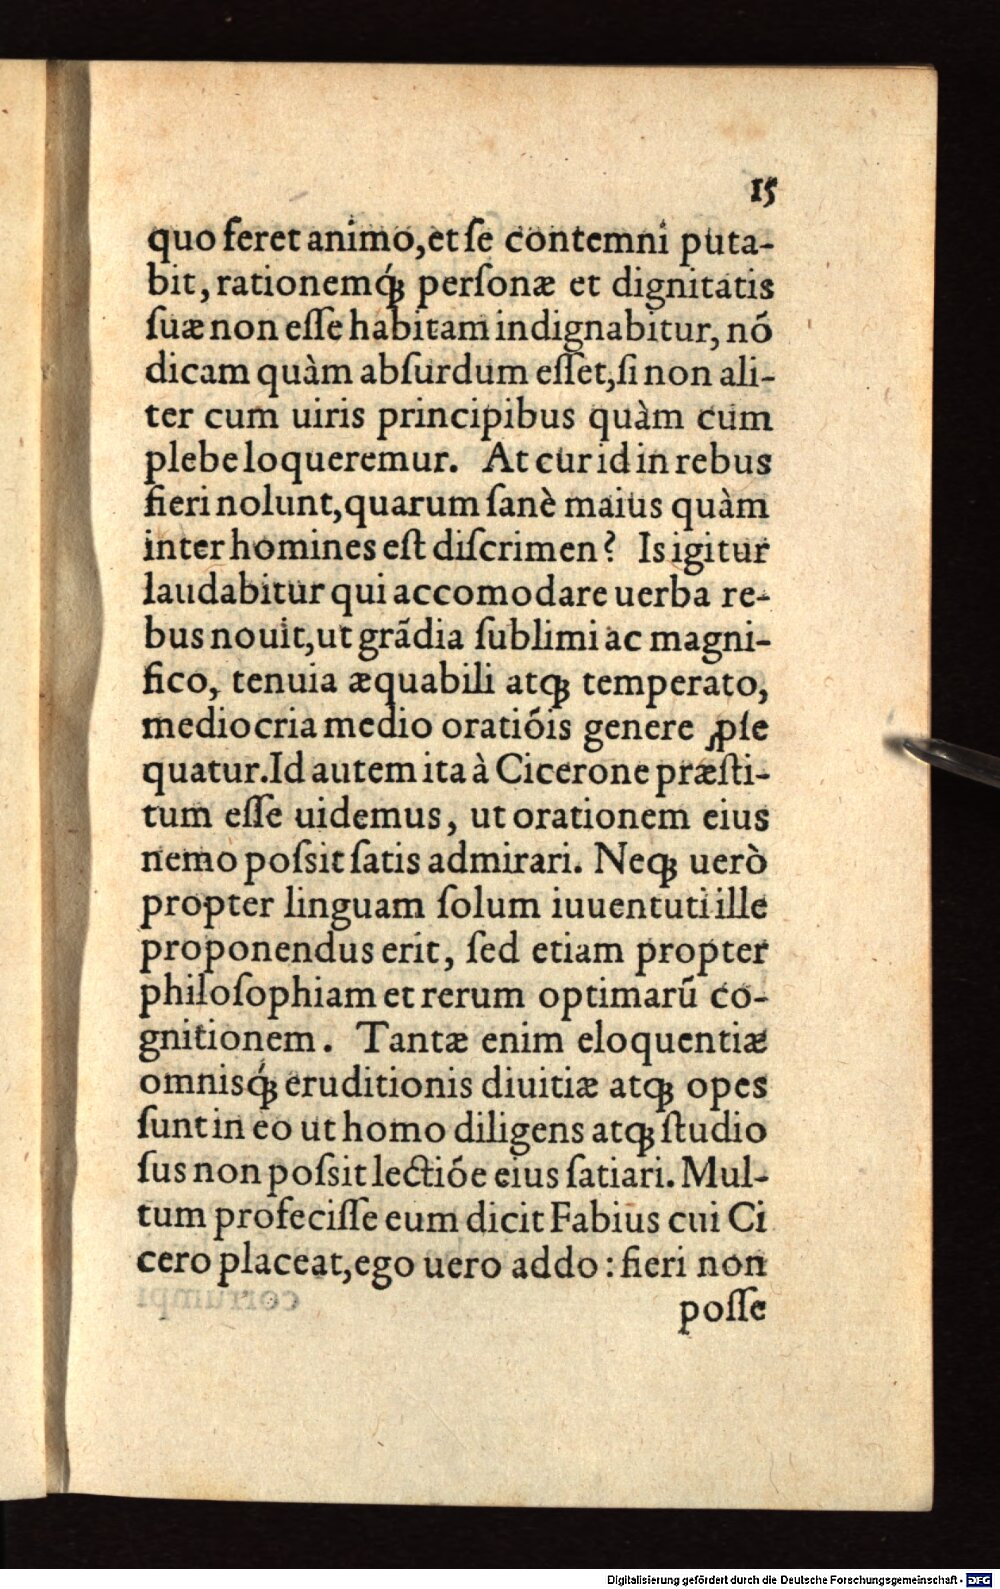 15
quo feret animo, et se contemni puta-
bit, rationemq́ꝫ perſonæ et dignitatis
ſuæ non eſſe habitam indignabitur, nõ
dicam quàm abſurdum eſſet, ſi non ali-
ter cum uiris principibus quàm cum
plebe loqueremur. At cur id in rebus
fieri nolunt, quarum ſanè maius quàm
inter homines eſt diſcrimen? Is igitur
laudabitur qui accomodare uerba re-
bus nouit, ut grãdia ſublimi ac magni-
fico, tenuia æquabili atqꝫ temperato,
mediocria medio oratiõis genere ꝓſe
quatur. Id autem ita à Cicerone præſti-
tum eſſe uidemus, ut orationem eius
nemo poſsit ſatis admirari. Neqꝫ uerò
propter linguam ſolum iuuentuti ille
proponendus erit, ſed etiam propter
philoſophiam et rerum optimarũ co-
gnitionem. Tantæ enim eloquentiæ
omnisq́ꝫ eruditionis diuitiæ atqꝫ opes
ſunt in eo ut homo diligens atqꝫ ſtudio
ſus non poſsit lectiõe eius ſatiari. Mul-
tum profeciſſe eum dicit Fabius cui Ci
cero placeat, ego uero addo: fieri non
poſſe
Digitalisierung gefördert durch die Deutsche Forschungsgemeinschaft - DFG